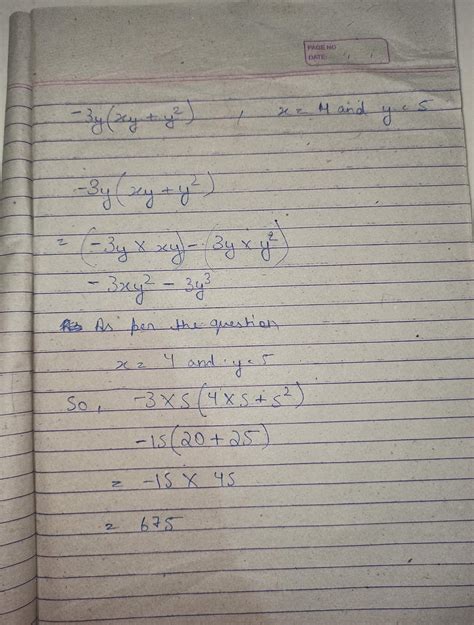 PAGE NO
DATE:
-3y(xy + y²) , x = 4 and y = 5
-3y(xy + y²)
= (-3y × xy) - (3y × y²)
- 3xy² - 3y³
As per the question
x = 4 and y = 5
So, -3 × 5 (4 × 5 + 5²)
-15(20 + 25)
= -15 × 45
= 675